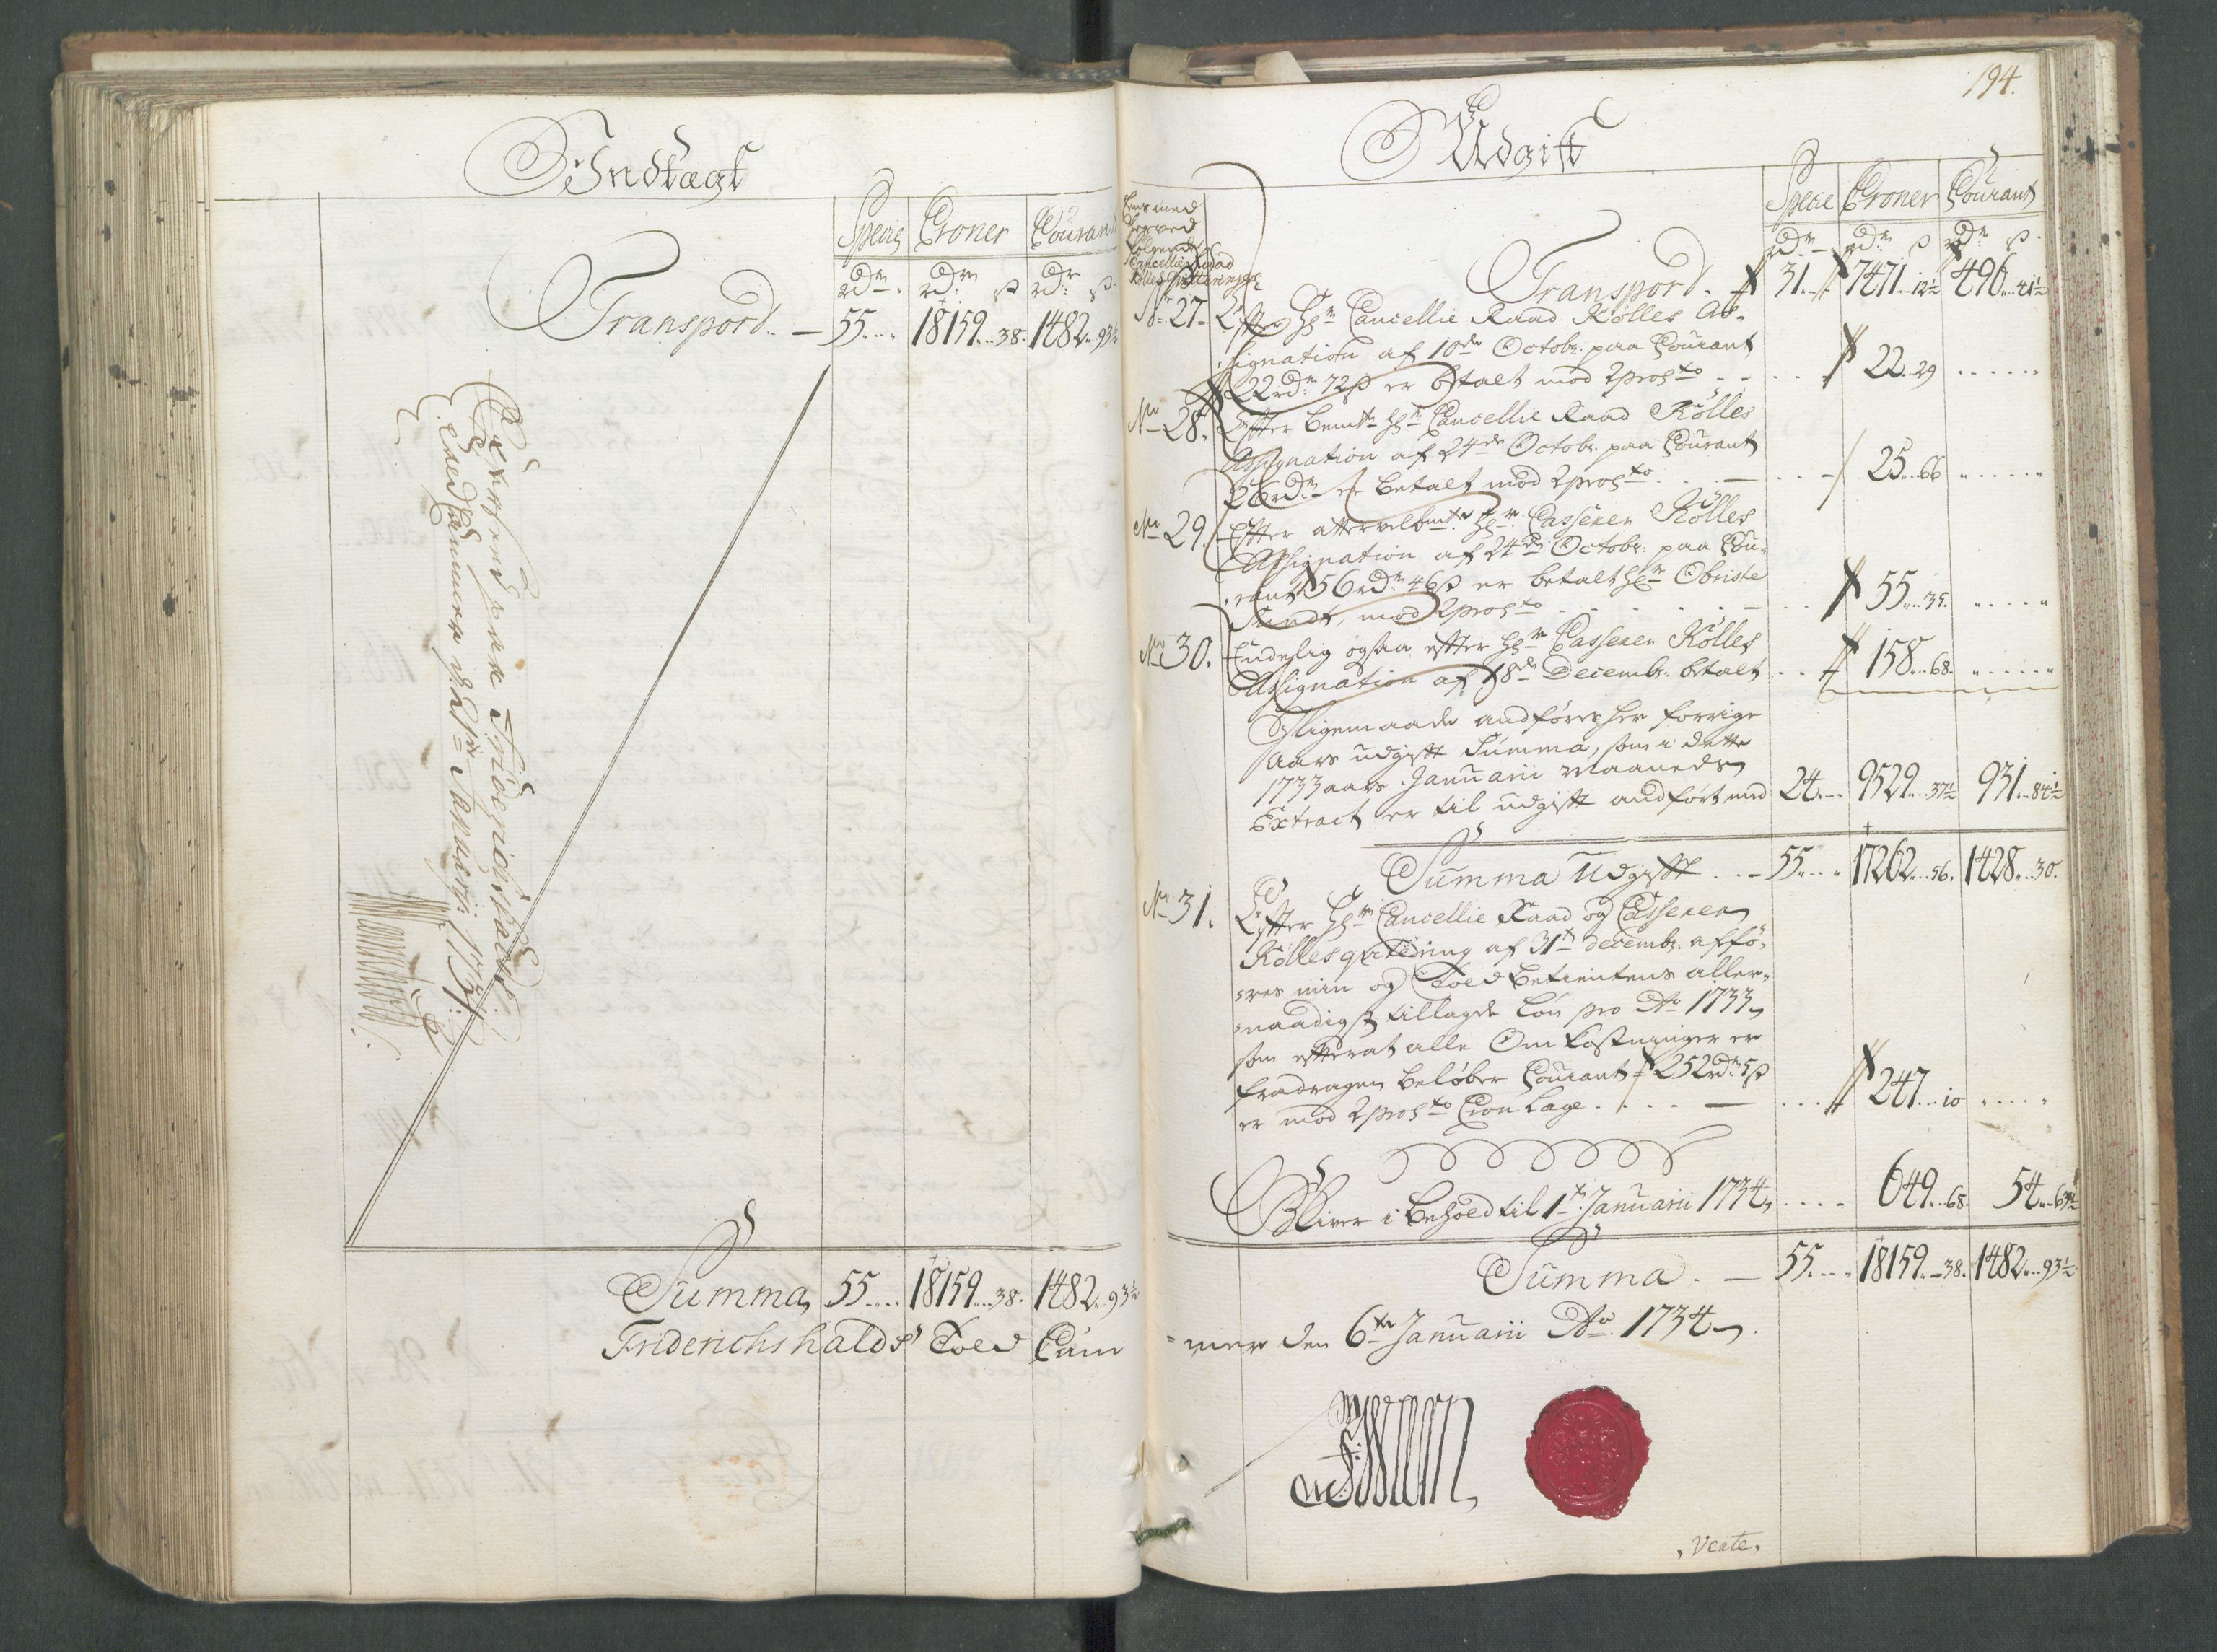 Indtægt
Specie Croner Courant
rdr. rdr. ß rdr. ß
Transpord. — 55.... 18159...38. 1482..93½
Told Cammer Januarij: 1734.
Summa, 55.... 18159...38. 1482..93½
Friderichshalds Told Cam
194.
Udgift
Specie Croner Courant
rdr. rdr. ß rdr. ß
Transpord. 31... 7471..12½ 496..41½
No 27. Efter Hr Cancellie Raad Kölles As-
signation af 10de Octobr. paa Courant
22rdr. 72ß er betalt mod 2 procto 22..29
No 28. Efter bemte Hr Cancellie Raad Kölles
Assignation af 24de Octobr. paa Courant
26rdr er betalt mod 2 procto 25..66
No 29. Efter Hr Casserer Kölles
Assignation af 24de Octobr. paa Cou-
rant 56rdr. 46ß er betalt Hr Obriste
mod 2 procto 55..35.
No 30. Endelig ogsaa efter Hr Casserer Kölles
Assignation af 18de Decembr. betalt 158..68.
Ligemaade andföres her forrige
Aars udgift Summa, som i dette
1733 aars Januarii Maaneds
Extract er til udgift andfört med 24... 9529...37½ 931...84½
Summa Udgift .. — 55.... 17262...56. 1428...30.
No 31. Efter Hr Cancellie Raad og Casserer
Kölles qvitering af 31te Decembr. affö-
res min og Told Betientens aller-
naadigst tillagde Lön pro Ao 1733
som efterat alle Omkostninger er
fradragen belöber Courant 252rdr 5ß
er mod 2 procto Cron Lage. 247...10
Bliver i behold til 1te Januarii 1734, .... 649..68. 54..63½
Summa. — 55.... 18159...38. 1482...93½
=mer den 6te Januarii Ao. 1734.
Verte.